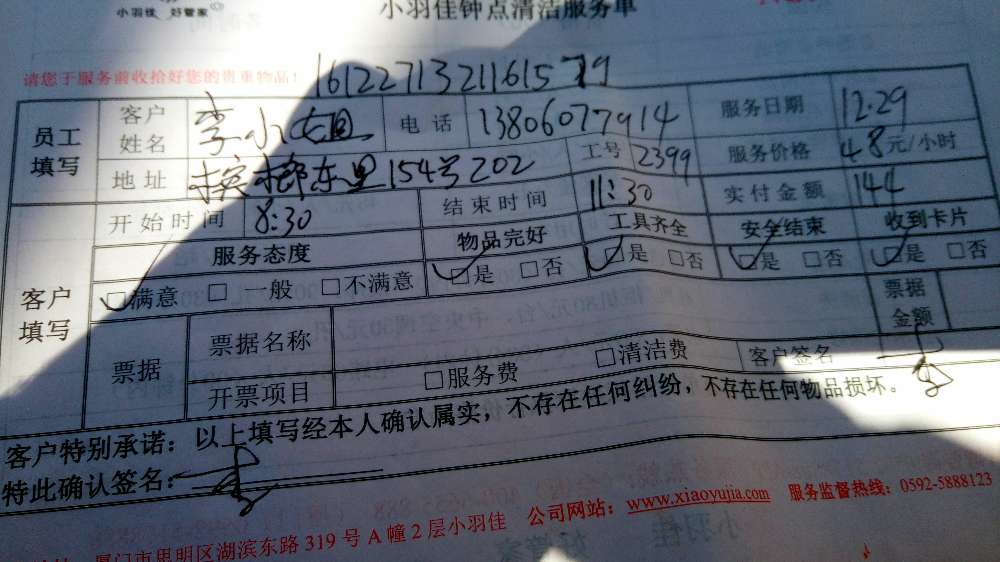 小羽佳 好管家
小羽佳钟点清洁服务单
请您于服务前收拾好您的贵重物品！
16122713211615779
员工填写 客户姓名 李小姐 电话 13806077914 服务日期 12.29
地址 槟榔东里154号202 工号 2399 服务价格 48元/小时
开始时间 8:30 结束时间 11:30 实付金额 144
客户填写 服务态度 物品完好 工具齐全 安全结束 收到卡片
☑满意 □一般 □不满意 ☑是 □否 ☑是 □否 ☑是 □否 ☑是 □否
票据 票据名称 票据金额
开票项目 □服务费 □清洁费 客户签名 李
客户特别承诺：以上填写经本人确认属实，不存在任何纠纷，不存在任何物品损坏。
特此确认签名： 李
厦门市思明区湖滨东路 319 号 A 幢 2 层小羽佳 公司网站：www.xiaoyujia.com 服务监督热线：0592-5888123